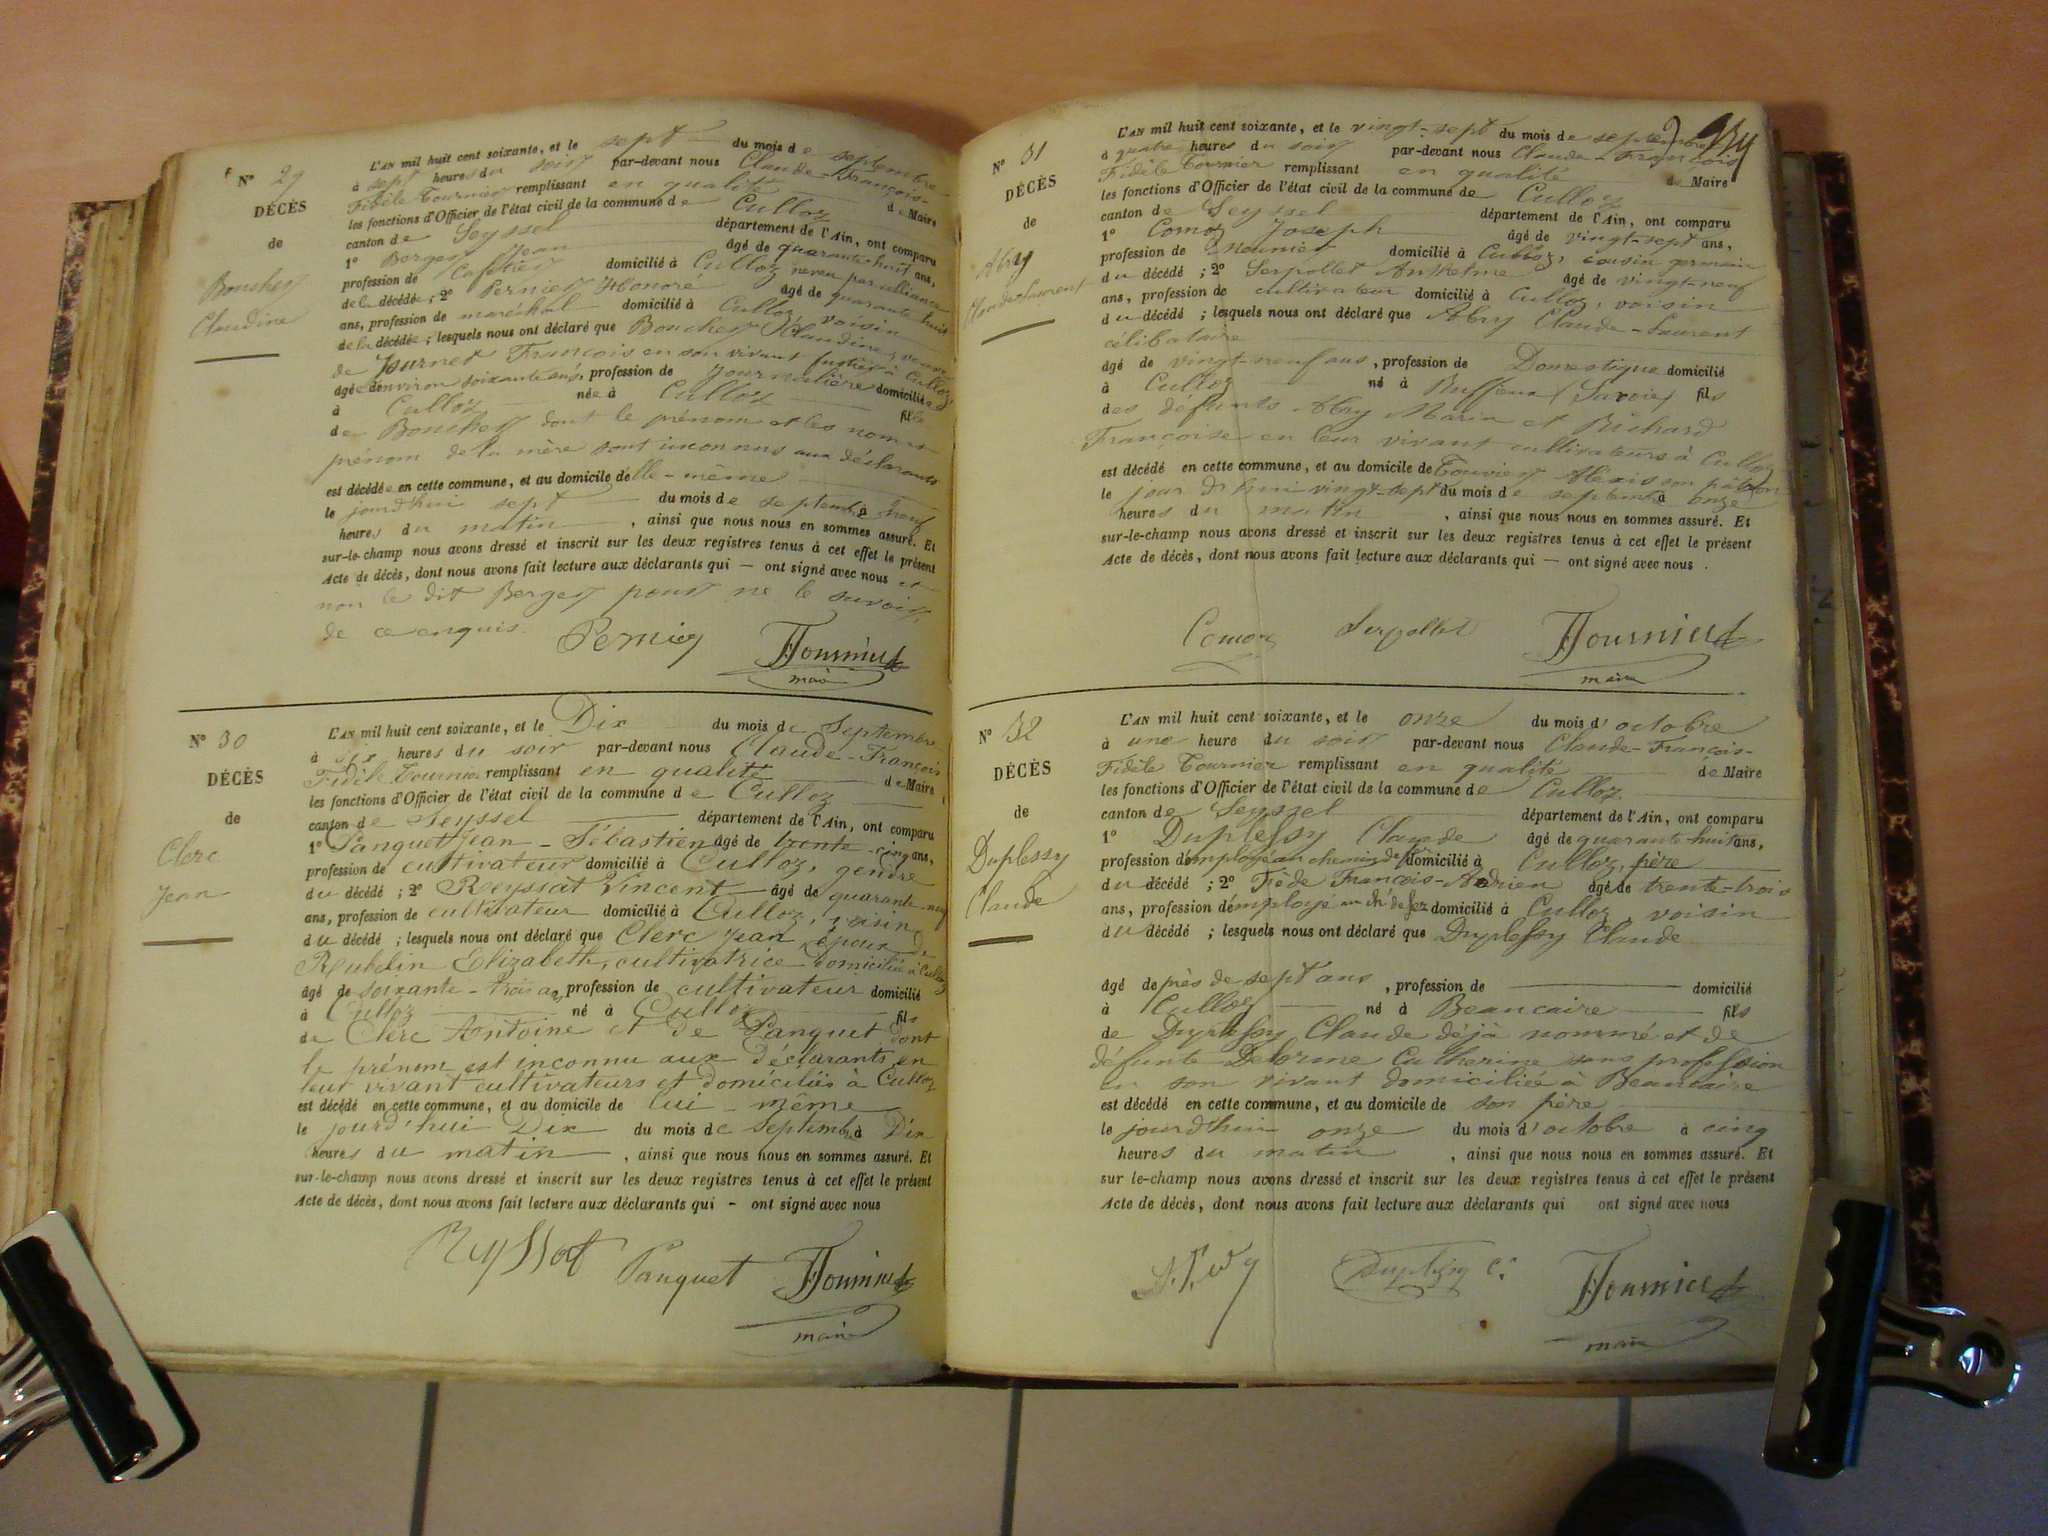 N° 29
DÉCÈS
de
Boucher
Claudine
L'AN mil huit cent soixante, et le sept du mois de septembre
à sept heures du soir par-devant nous Claude-François-
Fidèle Tournier remplissant en qualité de Maire
les fonctions d'Officier de l'état civil de la commune de Culloz
canton de Seyssel département de l'Ain, ont comparu
1° Berger Jean âgé de quarante-huit ans,
profession de Cafetier domicilié à Culloz, neveu par alliance
de la décédée; 2° Pernier Honoré âgé de quarante huit
ans, profession de maréchal domicilié à Culloz, voisin
de la décédée; lesquels nous ont déclaré que Boucher Claudine, veuve
de François en son vivant à Culloz,
âgée d'environ soixante ans, profession de journalière domiciliée
à Culloz née à Culloz fille
de Boucher dont le prénom et les nom et
prénom de la mère sont inconnus aux déclarants
est décédée en cette commune, et au domicile d'elle-même
le jourd'hui sept du mois de septembre à neuf
heures du matin, ainsi que nous nous en sommes assuré. Et
sur-le-champ nous avons dressé et inscrit sur les deux registres tenus à cet effet le présent
Acte de décès, dont nous avons fait lecture aux déclarants qui — ont signé avec nous et
non le dit Berger pour ne le savoir,
de ce enquis.
Pernier Tournier
maire
N° 30
DÉCÈS
de
Clerc
Jean
L'AN mil huit cent soixante, et le Dix du mois de Septembre
à six heures du soir par-devant nous Claude-François
Fidèle Tournier remplissant en qualité de Maire
les fonctions d'Officier de l'état civil de la commune de Culloz
canton de Seyssel département de l'Ain, ont comparu
1° Panquet Jean-Sébastien âgé de trente-cinq ans,
profession de cultivateur domicilié à Culloz, gendre
du décédé; 2° Reyssat Vincent âgé de quarante-neuf
ans, profession de cultivateur domicilié à Culloz, voisin
du décédé; lesquels nous ont déclaré que Clerc Jean, époux de
Elizabeth, cultivatrice domiciliée à Culloz
âgé de soixante-trois ans, profession de cultivateur domicilié
à Culloz né à Culloz fils
de Clerc Antoine et de Panquet dont
le prénom est inconnu aux déclarants en
leur vivant cultivateurs et domiciliés à Culloz
est décédé en cette commune, et au domicile de lui-même
le jourd'hui Dix du mois de septembre à Dix
heures du matin, ainsi que nous nous en sommes assuré. Et
sur-le-champ nous avons dressé et inscrit sur les deux registres tenus à cet effet le présent
Acte de décès, dont nous avons fait lecture aux déclarants qui - ont signé avec nous
Reyssat Panquet Tournier
maire
N° 31
DÉCÈS
de
Abry
Claude-Laurent
L'AN mil huit cent soixante, et le vingt-sept du mois de septembre
à quatre heures du soir par-devant nous Claude-François
Fidèle Tournier remplissant en qualité de Maire
les fonctions d'Officier de l'état civil de la commune de Culloz
canton de Seyssel département de l'Ain, ont comparu
1° Comoz Joseph âgé de vingt-sept ans,
profession de Meunier domicilié à Culloz, cousin germain
du décédé; 2° Serpollet Anthelme âgé de vingt-neuf
ans, profession de cultivateur domicilié à Culloz, voisin
du décédé; lesquels nous ont déclaré que Abry Claude-Laurent
célibataire
âgé de vingt-neuf ans, profession de Domestique domicilié
à Culloz né à Ruffieux (Savoie) fils
des défunts Abry Marin et Richard
Françoise en leur vivant cultivateurs à Culloz
est décédé en cette commune, et au domicile de Alexis son patron
le jour d'hui vingt-sept du mois de septembre à onze
heures du matin, ainsi que nous nous en sommes assuré. Et
sur-le-champ nous avons dressé et inscrit sur les deux registres tenus à cet effet le présent
Acte de décès, dont nous avons fait lecture aux déclarants qui — ont signé avec nous.
Comoz Serpollet Tournier
maire
N° 32
DÉCÈS
de
Duplessy
Claude
L'AN mil huit cent soixante, et le onze du mois d'octobre
à une heure du soir par-devant nous Claude-François-
Fidèle Tournier remplissant en qualité de Maire
les fonctions d'Officier de l'état civil de la commune de Culloz.
canton de Seyssel département de l'Ain, ont comparu
1° Duplessy Claude âgé de quarante huit ans,
profession d'employé au chemin de fer domicilié à Culloz, père
du décédé; 2° François-Adrien âgé de trente-trois
ans, profession d'employé au ch. de fer domicilié à Culloz, voisin
du décédé; lesquels nous ont déclaré que Duplessy Claude
âgé de près de sept ans, profession de domicilié
à Culloz né à Beaucaire fils
de Duplessy Claude déjà nommé et de
défunte Delorme Catherine sans profession
en son vivant domiciliée à Beaucaire
est décédé en cette commune, et au domicile de son père
le jourd'hui onze du mois d'octobre à cinq
heures du matin, ainsi que nous nous en sommes assuré. Et
sur le-champ nous avons dressé et inscrit sur les deux registres tenus à cet effet le présent
Acte de décès, dont nous avons fait lecture aux déclarants qui ont signé avec nous
Duplessy C. Tournier
maire